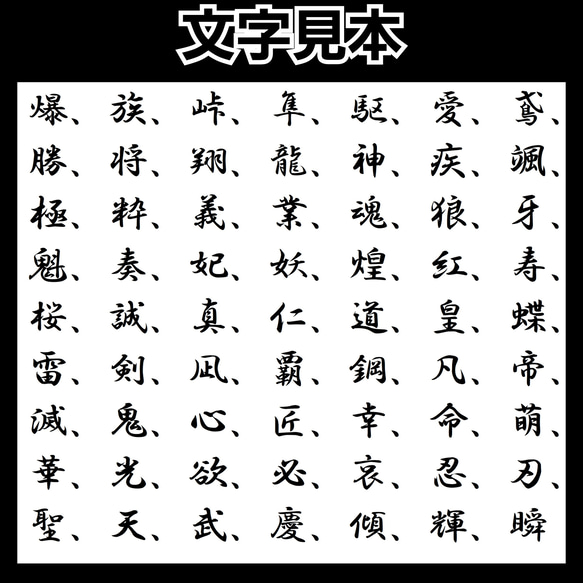 文字見本
爆、族、峠、隼、駆、愛、鳶、
勝、将、翔、龍、神、疾、颯、
極、粋、義、業、魂、狼、牙、
魁、奏、妃、妖、煌、紅、寿、
桜、誠、真、仁、道、皇、蝶、
雷、剣、凪、覇、鋼、凡、帝、
滅、鬼、心、匠、幸、命、萌、
華、光、欲、必、哀、忍、刃、
聖、天、武、慶、傾、輝、瞬